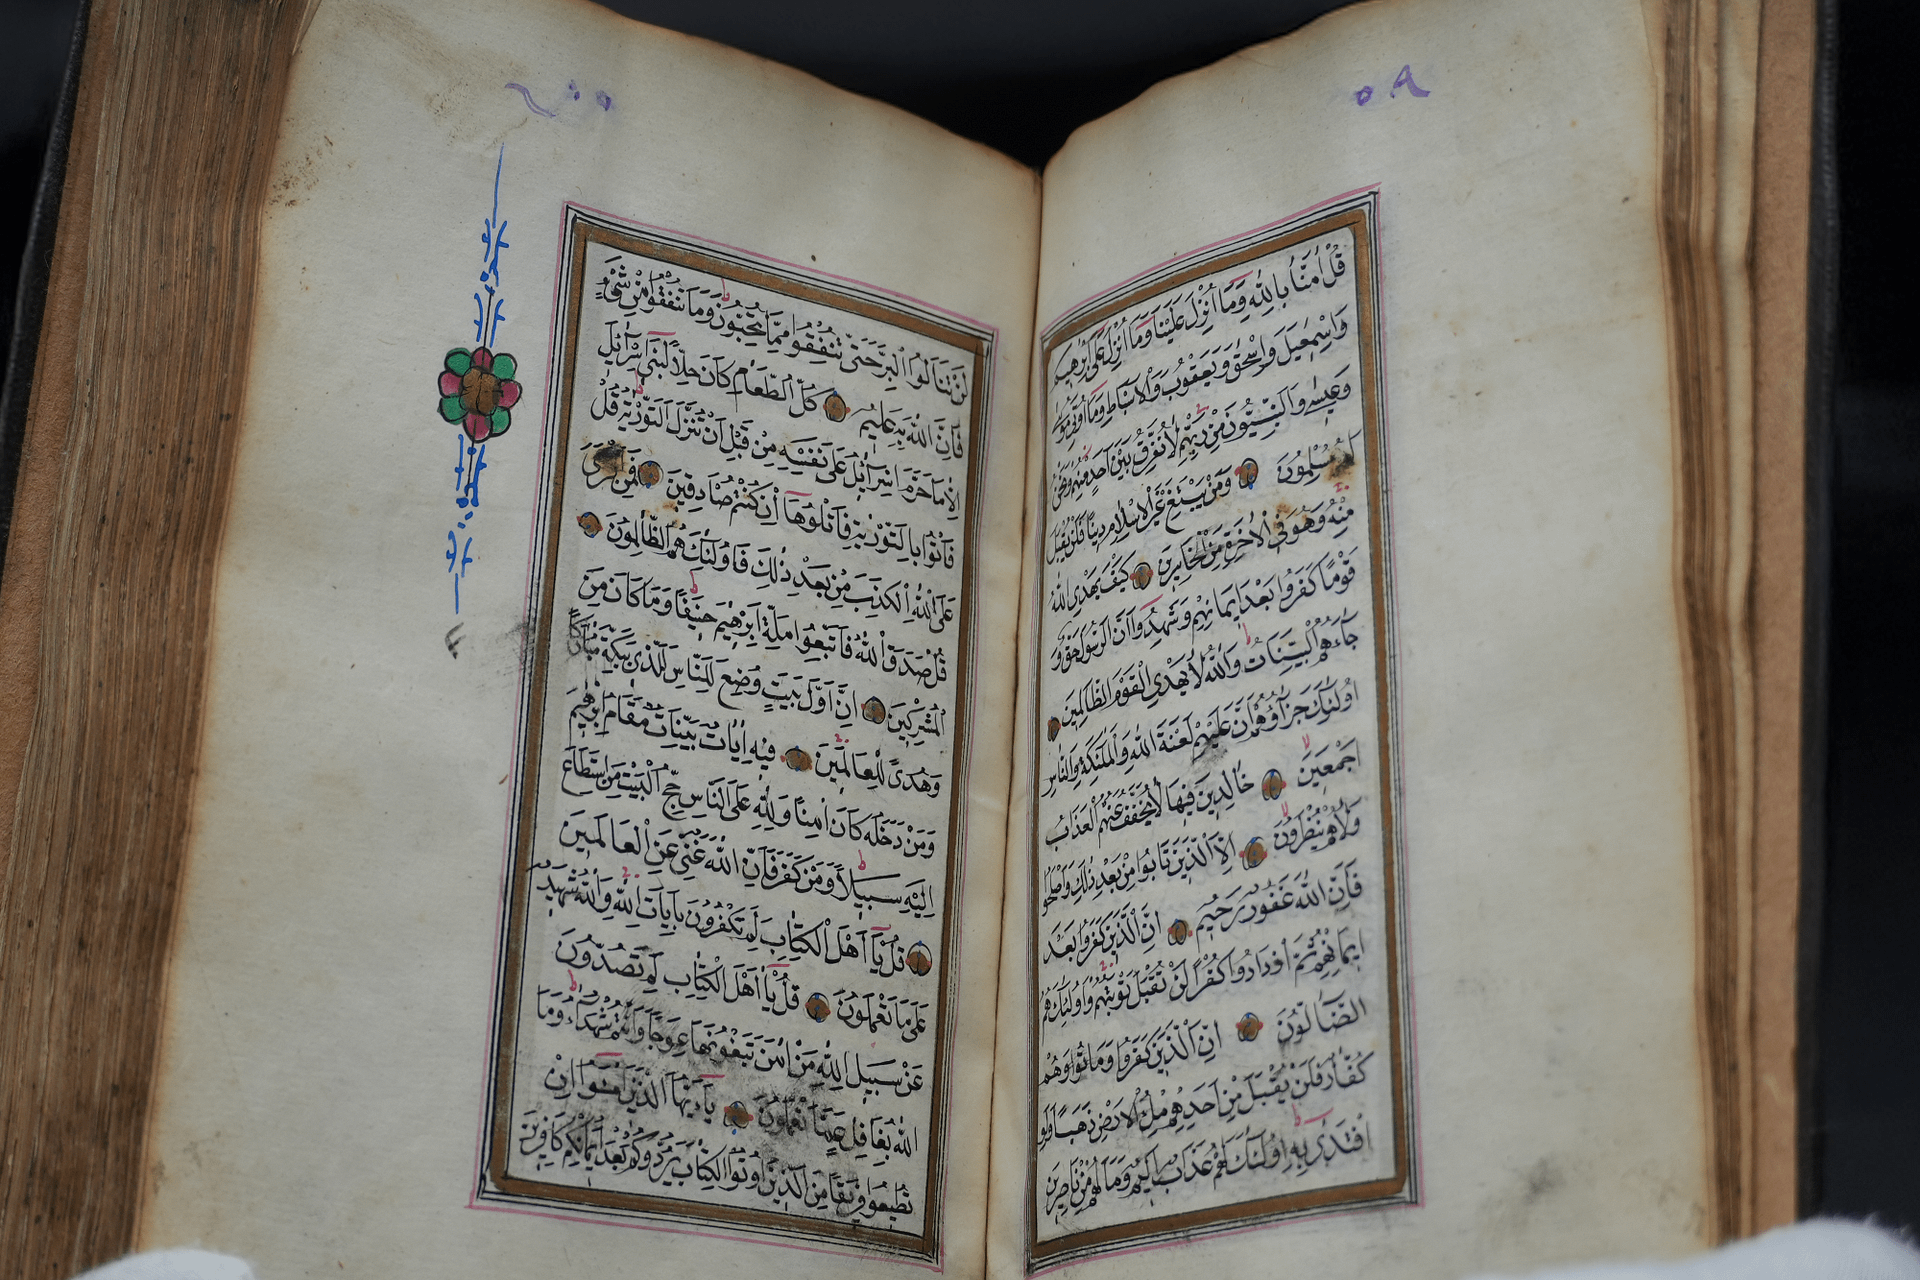 ٥٩
قُلْ اٰمَنَّا بِاللّٰهِ وَمَٓا اُنْزِلَ عَلَيْنَا وَمَٓا اُنْزِلَ عَلٰٓى اِبْرٰهِيمَ
وَاِسْمٰعِيلَ وَاِسْحٰقَ وَيَعْقُوبَ وَالْاَسْبَاطِ وَمَٓا اُوتِيَ مُوسٰى
وَعِيسٰى وَالنَّبِيُّونَ مِنْ رَبِّهِمْ لَا نُفَرِّقُ بَيْنَ اَحَدٍ مِنْهُمْ وَنَحْنُ
لَهُ مُسْلِمُونَ وَمَنْ يَبْتَغِ غَيْرَ الْاِسْلَامِ دِينًا فَلَنْ يُقْبَلَ
مِنْهُ وَهُوَ فِي الْاٰخِرَةِ مِنَ الْخَاسِرِينَ كَيْفَ يَهْدِي اللّٰهُ
قَوْمًا كَفَرُوا بَعْدَ اِيمَانِهِمْ وَشَهِدُٓوا اَنَّ الرَّسُولَ حَقٌّ وَ
جَٓاءَهُمُ الْبَيِّنَاتُ وَاللّٰهُ لَا يَهْدِي الْقَوْمَ الظَّالِمِينَ
اُولٰٓئِكَ جَزَٓاؤُهُمْ اَنَّ عَلَيْهِمْ لَعْنَةَ اللّٰهِ وَالْمَلٰٓئِكَةِ وَالنَّاسِ
اَجْمَعِينَ خَالِدِينَ فِيهَا لَا يُخَفَّفُ عَنْهُمُ الْعَذَابُ
وَلَا هُمْ يُنْظَرُونَ اِلَّا الَّذِينَ تَابُوا مِنْ بَعْدِ ذٰلِكَ وَاَصْلَحُوا
فَاِنَّ اللّٰهَ غَفُورٌ رَحِيمٌ اِنَّ الَّذِينَ كَفَرُوا بَعْدَ
اِيمَانِهِمْ ثُمَّ ازْدَادُوا كُفْرًا لَنْ تُقْبَلَ تَوْبَتُهُمْ وَاُولٰٓئِكَ هُمُ
الضَّٓالُّونَ اِنَّ الَّذِينَ كَفَرُوا وَمَاتُوا وَهُمْ
كُفَّارٌ فَلَنْ يُقْبَلَ مِنْ اَحَدِهِمْ مِلْءُ الْاَرْضِ ذَهَبًا وَلَوِ
افْتَدٰى بِهِ اُولٰٓئِكَ لَهُمْ عَذَابٌ اَلِيمٌ وَمَا لَهُمْ مِنْ نَاصِرِينَ
لَنْ تَنَالُوا الْبِرَّ حَتّٰى تُنْفِقُوا مِمَّا تُحِبُّونَ وَمَا تُنْفِقُوا مِنْ شَيْءٍ
فَاِنَّ اللّٰهَ بِهِ عَلِيمٌ كُلُّ الطَّعَامِ كَانَ حِلًّا لِبَنِٓي اِسْرَٓائِيلَ
اِلَّا مَا حَرَّمَ اِسْرَٓائِيلُ عَلٰى نَفْسِهِ مِنْ قَبْلِ اَنْ تُنَزَّلَ التَّوْرٰيةُ قُلْ
فَأْتُوا بِالتَّوْرٰيةِ فَاتْلُوهَٓا اِنْ كُنْتُمْ صَادِقِينَ فَمَنِ افْتَرٰى
عَلَى اللّٰهِ الْكَذِبَ مِنْ بَعْدِ ذٰلِكَ فَاُولٰٓئِكَ هُمُ الظَّالِمُونَ
قُلْ صَدَقَ اللّٰهُ فَاتَّبِعُوا مِلَّةَ اِبْرٰهِيمَ حَنِيفًا وَمَا كَانَ مِنَ
الْمُشْرِكِينَ اِنَّ اَوَّلَ بَيْتٍ وُضِعَ لِلنَّاسِ لَلَّذِي بِبَكَّةَ مُبَارَكًا
وَهُدًى لِلْعَالَمِينَ فِيهِ اٰيَاتٌ بَيِّنَاتٌ مَقَامُ اِبْرٰهِيمَ
وَمَنْ دَخَلَهُ كَانَ اٰمِنًا وَلِلّٰهِ عَلَى النَّاسِ حِجُّ الْبَيْتِ مَنِ اسْتَطَاعَ
اِلَيْهِ سَبِيلًا وَمَنْ كَفَرَ فَاِنَّ اللّٰهَ غَنِيٌّ عَنِ الْعَالَمِينَ
قُلْ يَٓا اَهْلَ الْكِتَابِ لِمَ تَكْفُرُونَ بِاٰيَاتِ اللّٰهِ وَاللّٰهُ شَهِيدٌ
عَلٰى مَا تَعْمَلُونَ قُلْ يَٓا اَهْلَ الْكِتَابِ لِمَ تَصُدُّونَ
عَنْ سَبِيلِ اللّٰهِ مَنْ اٰمَنَ تَبْغُونَهَا عِوَجًا وَاَنْتُمْ شُهَدَٓاءُ وَمَا
اللّٰهُ بِغَافِلٍ عَمَّا تَعْمَلُونَ يَٓا اَيُّهَا الَّذِينَ اٰمَنُٓوا اِنْ
تُطِيعُوا فَرِيقًا مِنَ الَّذِينَ اُوتُوا الْكِتَابَ يَرُدُّوكُمْ بَعْدَ اِيمَانِكُمْ كَافِرِينَ